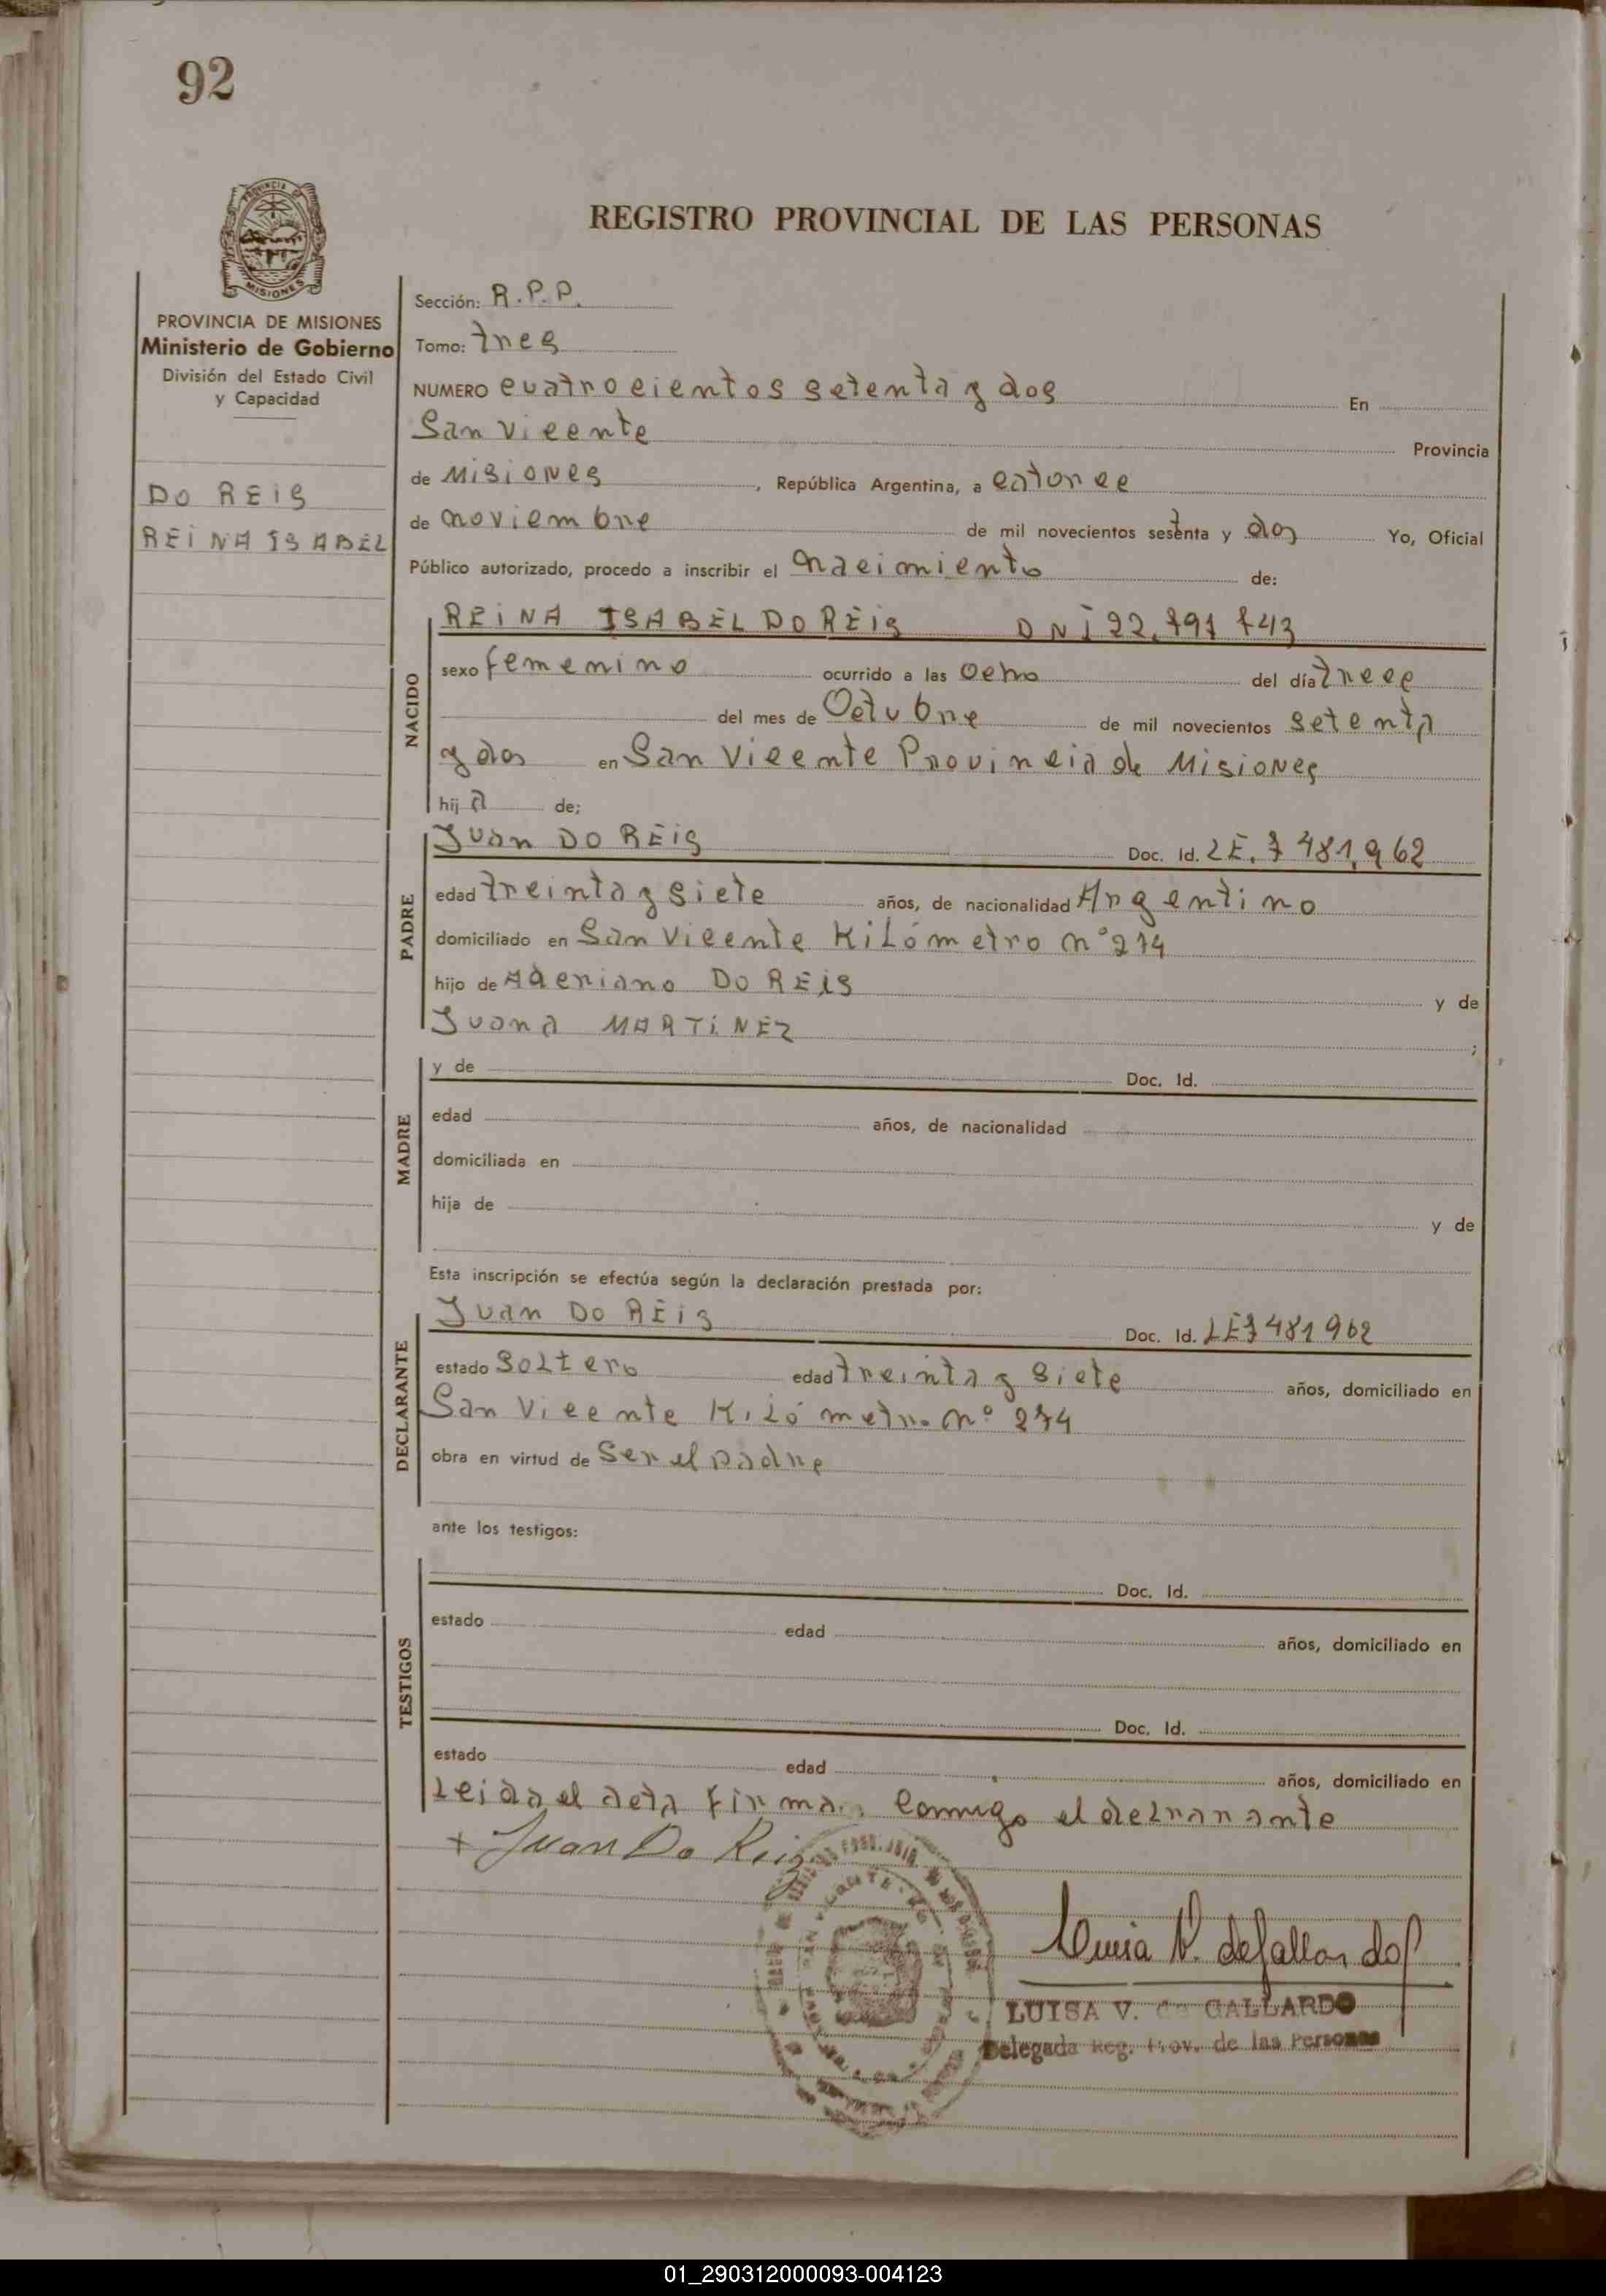 92
PROVINCIA DE
MISIONES
REGISTRO PROVINCIAL DE LAS PERSONAS
PROVINCIA DE MISIONES
Ministerio de Gobierno
División del Estado Civil
y Capacidad
DO REIS
REINA ISABEL
Sección: R.P.P.
Tomo: tres
NUMERO cuatrocientos setenta y dos En
San Vicente Provincia
de Misiones, República Argentina, a catorce
de noviembre de mil novecientos setenta y dos Yo, Oficial
Público autorizado, procedo a inscribir el nacimiento de:
NACIDO
REINA ISABEL DO REIS DNI
sexo femenino ocurrido a las ocho del día trece
del mes de Octubre de mil novecientos setenta
y dos en San Vicente Provincia de Misiones
hij a de;
PADRE
Juan DO REIS Doc. Id. LE. 7 481,962
edad treinta y siete años, de nacionalidad Argentino
domiciliado en San Vicente Kilómetro nº 274
hijo de Aderiano DO REIS y de
Juana MARTINEZ ;
MADRE
y de Doc. Id.
edad años, de nacionalidad
domiciliada en
hija de y de
Esta inscripción se efectúa según la declaración prestada por:
DECLARANTE
Juan DO REIS Doc. Id. LE 7 481 962
estado Soltero edad treinta y siete años, domiciliado en
San Vicente Kilómetro nº 274
obra en virtud de Ser el padre
ante los testigos:
TESTIGOS
Doc. Id.
estado edad años, domiciliado en
Doc. Id.
estado edad años, domiciliado en
Leida el acta firma conmigo el declarante
+ Juan Do Reis
Luisa V. de Gallardo
LUISA V. de GALLARDO
Delegada Reg. Prov. de las Personas
01_290312000093-004123